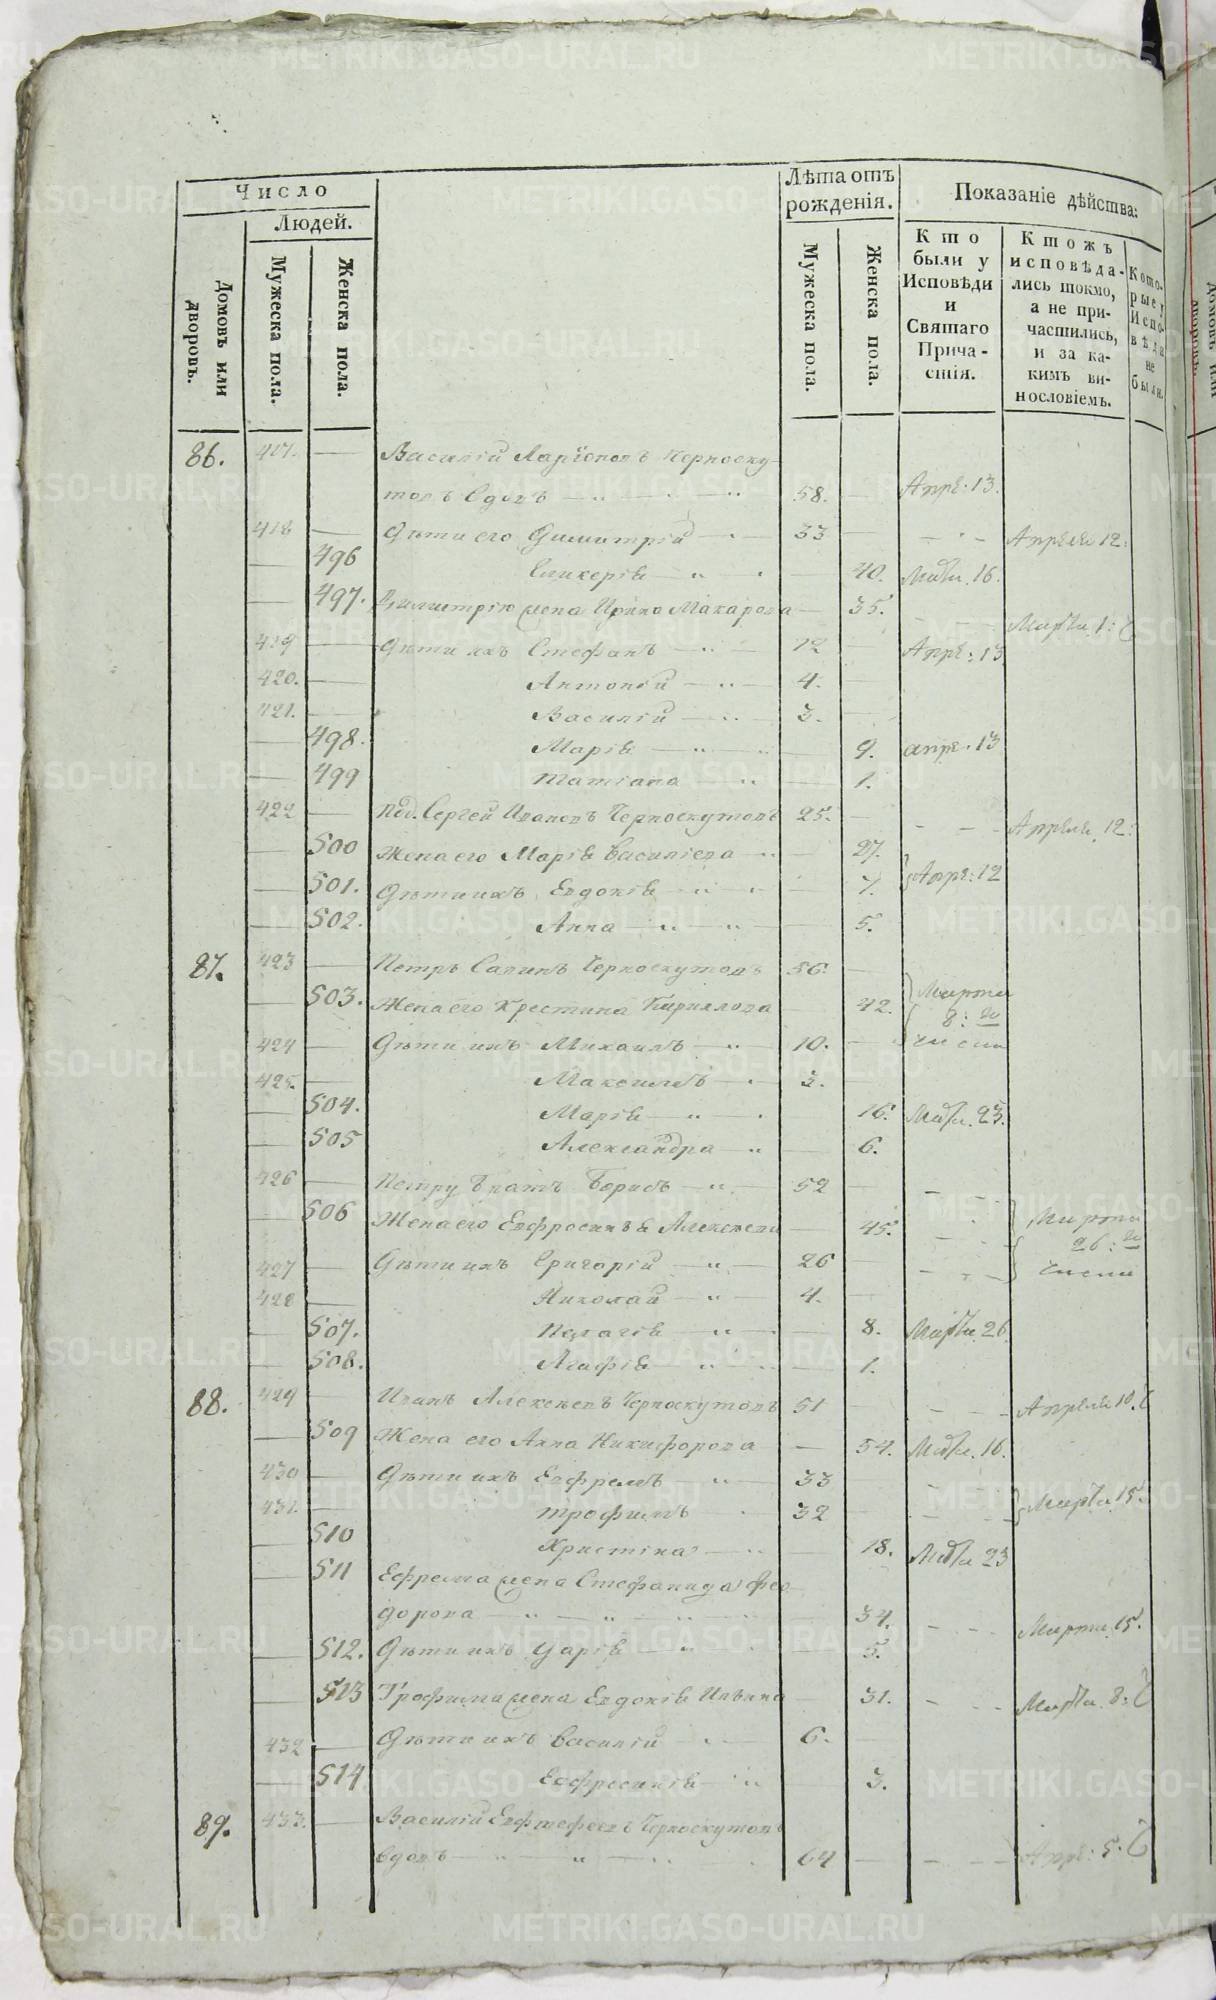 Число
Людей.
Домовъ или дворовъ.
Мужеска пола.
Женска пола.
Лѣта отъ рожденія.
Мужеска пола.
Женска пола.
Показаніе дѣйства:
Кто были у Исповѣди и Святаго Прича-стія.
Ктожъ исповѣда-лись токмо, а не при-частились, и за ка-кимъ ви-нословіемъ.
Кото-рые у Испо-вѣди не были.
86. 417. — Василій Ларіоновъ Черноску-
товъ вдовъ — 58. — Апрѣ: 13.
418 — Дѣти его Димитрій — 33 — Апреля 12:
— 496 Гликерія — 40. Мар. 16.
— 497. Димитрію жена Ирина Макарова — 35. Марта 1:
419 — Дѣти ихъ Стефанъ — 12 — Апрѣ: 13
420. — Антоній — 4. —
421. — Василій — 3. —
— 498. Марія — 9. апрѣ. 13
— 499 Татіана — 1.
422 — Под. Сергей Ивановъ Черноскутовъ 25. — Апреля 12:
— 500 Жена его Марія Васильева — 27.
— 501. Дѣти ихъ Евдокія — 7. Апрѣ: 12
— 502. Анна — 5.
87. 423 — Петръ Савинъ Черноскутовъ 56. —
— 503. Жена его Крестина Кириллова — 42. Марта 8: го числа
424 — Дѣти ихъ Михаилъ — 10. —
425. — Максимъ — 3. —
— 504. Марія — 16. Мар. 23.
— 505 Александра — 6.
426 — Петру братъ Борисъ — 52
— 506 Жена его Евфросинья Алексѣева — 45. Марта 26: го числа
427 — Дѣти ихъ Григорій — 26
428 — Николай — 4.
— 507. Пелагія — 8. Марта 26.
— 508. Агафія — 1.
88. 429 — Иванъ Алексѣевъ Черноскутовъ 51 — Апреля 10.
— 509 Жена его Анна Никифорова — 54. Мар. 16.
430 — Дѣти ихъ Ефремъ — 33
431. — Трофимъ — 32 Марта 15.
— 510 Христина — 18. Мар. 23
— 511 Ефрема жена Стефанида Фео-
дорова — 34. Марта 15.
— 512. Дѣти ихъ Дарія — 5.
— 513 Трофима жена Евдокія Ильина — 31. Марта 8:
432 — Дѣти ихъ Василій — 6. —
— 514 Евфросинія — 3.
89. 433. — Василій Евстефеевъ Черноскутовъ
вдовъ — 64 — Апрѣ: 5.
METRIKI.GASO-URAL.RU